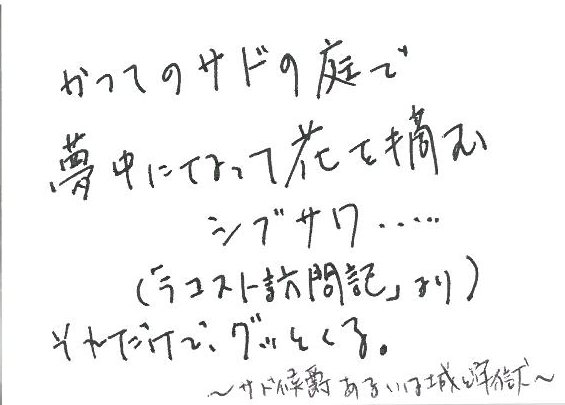 かつてのサドの庭で
夢中になって花を摘む
シブサワ.....
(「ラコスト訪問記」より)
それだけで、グッとくる。
～サド侯爵 あるいは城と牢獄～